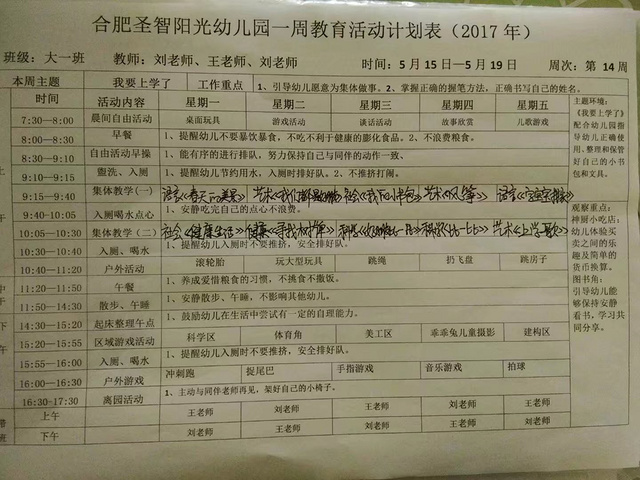 合肥圣智阳光幼儿园一周教育活动计划表（2017年）
班级：大一班 教师：刘老师、王老师、刘老师 时间：5月15日—5月19日 周次：第14周
本周主题 我要上学了 工作重点 1、引导幼儿愿意为集体做事。2、掌握正确的握笔方法，正确书写自己的姓名。
时间 活动内容 星期一 星期二 星期三 星期四 星期五
7:30—8:00 晨间自由活动 桌面玩具 游戏活动 谈话活动 故事欣赏 儿歌游戏
8:00—8:30 早餐 1、提醒幼儿不要暴饮暴食，不吃不利于健康的膨化食品。2、不浪费粮食。
8:30—9:10 自由活动早操 1、能有序的进行排队，努力保持自己与同伴的动作一致、
8:50—9:15 盥洗、入厕 1、提醒幼儿节约用水，入厕时排好队。2、不推挤打闹。
9:15—9:40 集体教学(一) 语言 艺术 社会《我的小书包》 艺术《风筝》 语言
9:40—10:05 入厕喝水点心 1、安静吃完自己的点心不浪费。
10:05—10:30 集体教学（二） 社会《健康生活》 健康 科学 科学《比一比》 艺术《上学歌》
10:30—10:40 入厕、喝水 1、提醒幼儿入厕时不要推挤，安全排好队。
10:40—11:20 户外活动 滚轮胎 玩大型玩具 跳绳 扔飞盘 跳房子
11:20—11:50 午餐 1、养成爱惜粮食的习惯，不挑食不撒饭。
11:50—14:30 散步、午睡 1、安静散步、午睡，不影响其他幼儿。
14:30—15:20 起床整理午点 1、鼓励幼儿在生活中尝试有一定的自理能力。
15:20—15:55 区域游戏活动 科学区 体育角 美工区 乖乖兔儿童摄影 建构区
15:55—16:00 入厕、喝水 1、提醒幼儿入厕时不要推挤，安全排好队。
16:00—16:30 户外游戏 冲刺跑 捉尾巴 手指游戏 音乐游戏 拍球
16:30-17:30 离园活动 1、主动与同伴老师再见，架好自己的小椅子。
上午 王老师 刘老师 王老师 刘老师 王老师
下午 刘老师 王老师 刘老师 王老师 刘老师
主题环境：
《我要上学了》
配合幼儿园指导幼儿正确使用，整理和保管好自己的小书包和文具。
观察重点：
神厨小吃店：
幼儿体验买卖之间的乐趣及简单的货币换算。
图书角：
引导幼儿能够保持安静看书，学习共同分享。